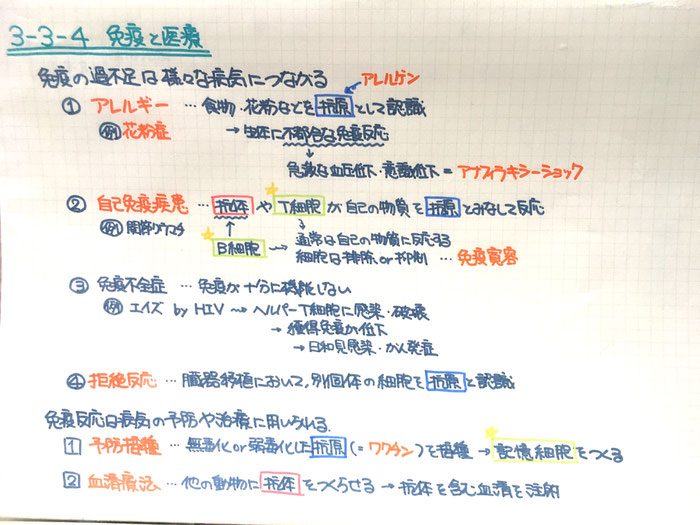 3-3-4 免疫と医療
免疫の過不足は様々な病気につながる
アレルゲン
① アレルギー … 食物・花粉などを抗原として認識
例 花粉症 → 生体に不都合な免疫反応
↓
急激な血圧低下・意識低下 = アナフィラキシーショック
② 自己免疫疾患 … 抗体やT細胞が自己の物質を抗原とみなして反応
例 関節リウマチ
B細胞 → 通常は自己の物質に反応する
細胞は排除or抑制 … 免疫寛容
③ 免疫不全症 … 免疫が十分に機能しない
例 エイズ by HIV → ヘルパーT細胞に感染・破壊
→ 獲得免疫が低下
→ 日和見感染・がん発症
④ 拒絶反応 … 臓器移植において,別個体の細胞を抗原と認識
免疫反応は病気の予防や治療に用いられる.
1 予防接種 … 無毒化or弱毒化した抗原(=ワクチン)を接種 → 記憶細胞をつくる
2 血清療法 … 他の動物に抗体をつくらせる → 抗体を含む血清を注射